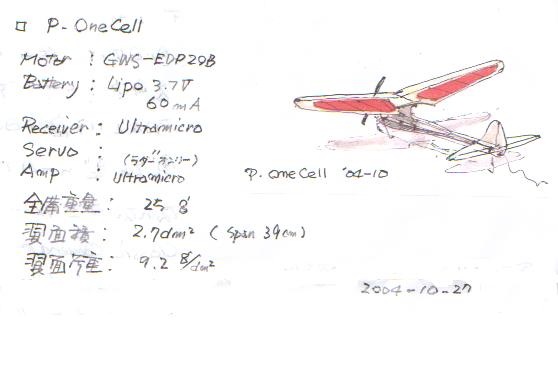 □ P-OneCell
Motor : GWS-EDP20B
Battery : Lipo 3.7V
60mA
Receiver : Ultramicro
Servo : 〃
(ラダーオンリー)
Amp : Ultramicro
P. oneCell '04-10
全備重量 : 25 g
翼面積 : 2.7dm² (Span 39cm)
翼面荷重 : 9.2 g/dm²
2004-10-27